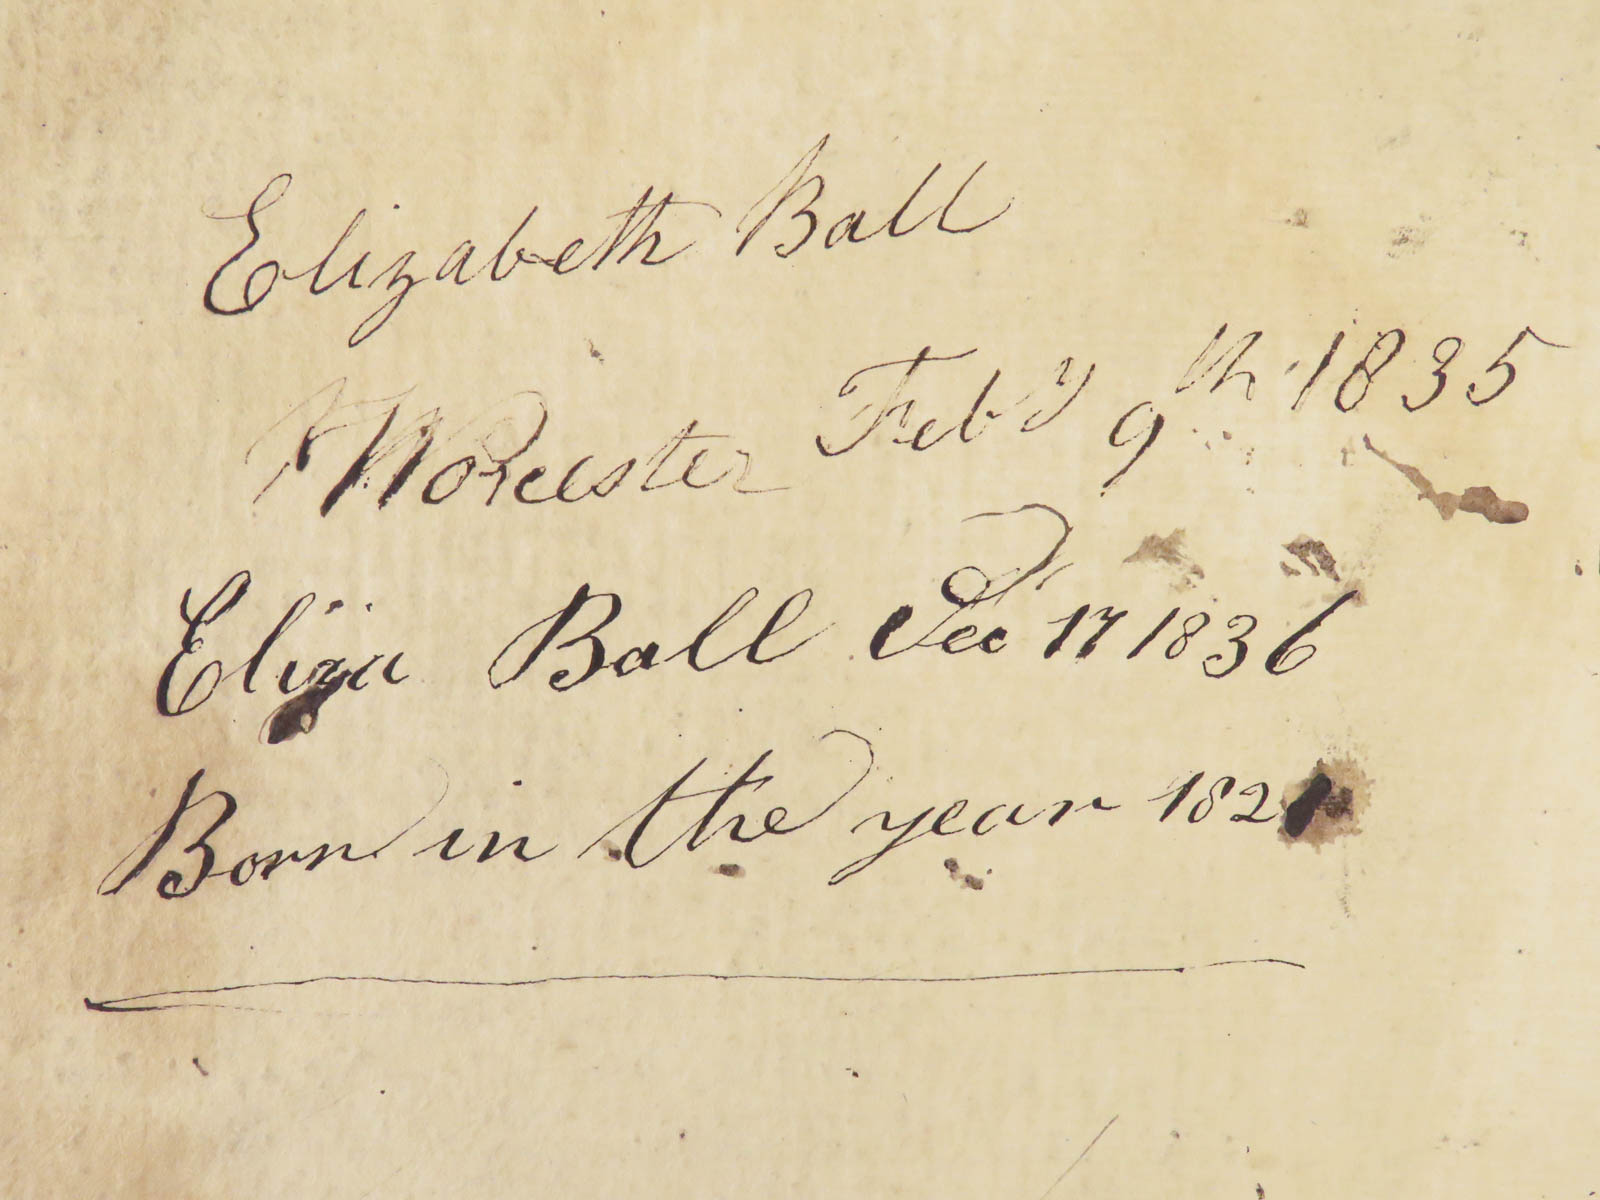 Elizabeth Ball
Worcester Feby 9th 1835
Eliza Ball Dec 17 1836
Born in the year 1821